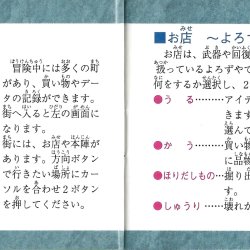 冒険中には多くの町
があり、買い物やデー
タの記録ができます。
街へ入ると左の画面に
なります。
街には、お店や本陣が
あります。方向ボタン
で行きたい場所にカー
ソルを合わせ②ボタン
を押してください。
■お店 〜よろず
お店は、武器や回
扱っているよろずやで
何をするか選択し、②
●う る………アイテ
きます
選んで
●か う………買い物
に品物
●ほりだしもの…掘り
到
●しゅうり……壊れ